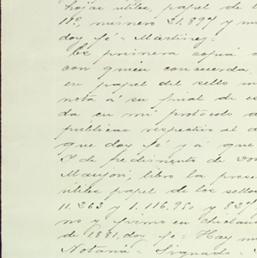 hojas utiles, papel de
11º, número 21.897 y
doy fé - Martinez -
Es primera copia
con quien concuerda
en papel del sello
nota á su final de es
da en mi protocolo
publicas respectivo al
que doy fé y á que
de pedimento de
Mauzon, libro la prese
utiles papel de los sellos
11.263 y 1.116,950 y 83
no y firmo en Chiclana
de 1881, doy fé - Hay
Notaria - Signado -